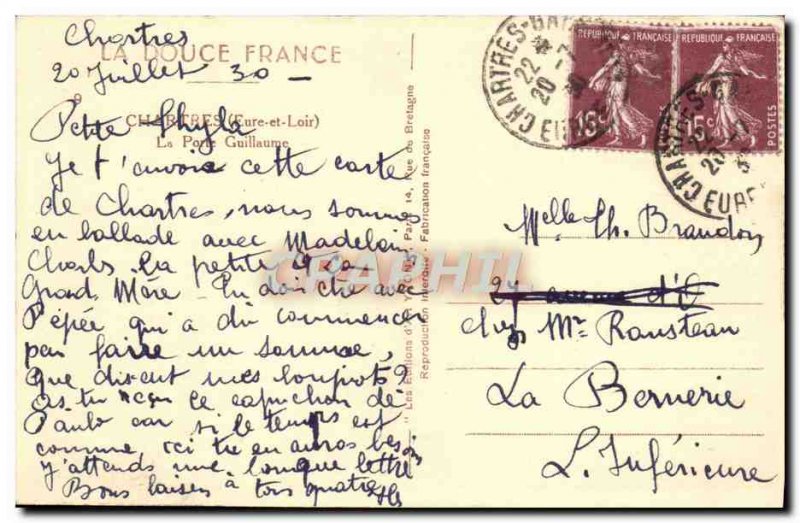 Chartres
LA DOUCE FRANCE
20 Juillet 30 -
9
CHARTRES (Eure-et-Loir)
La Porte Guillaume
Petite
Je t'envoie cette carte
de Chartres, nous sommes
en ballade avec Madelein
Charls. La petite et sa
Grand Mère -
Pépée qui a dû commencer
par faire un somme,
Que disent mes loupiots?
As tu reçu le capuchon de
Paulo car si le temps est
comme ici tu en auras bes.
J'attends une longue lettre
Bons baisers à tous quatre
"Les Editions d'Art YVON" Paris 14, Rue de Bretagne
Reproduction Interdite. Fabrication française
CHARTRES-GARE
22
20-7
30
EURE
REPUBLIQUE FRANÇAISE
15c
POSTES
REPUBLIQUE FRANÇAISE
15c
POSTES
CHARTRES-GARE
22
20-7
30
EURE
CPAPHIL
Melle Th. Brandon
27 avenue d'
chez Mr Rousteau
La Bernerie
L. Inférieure